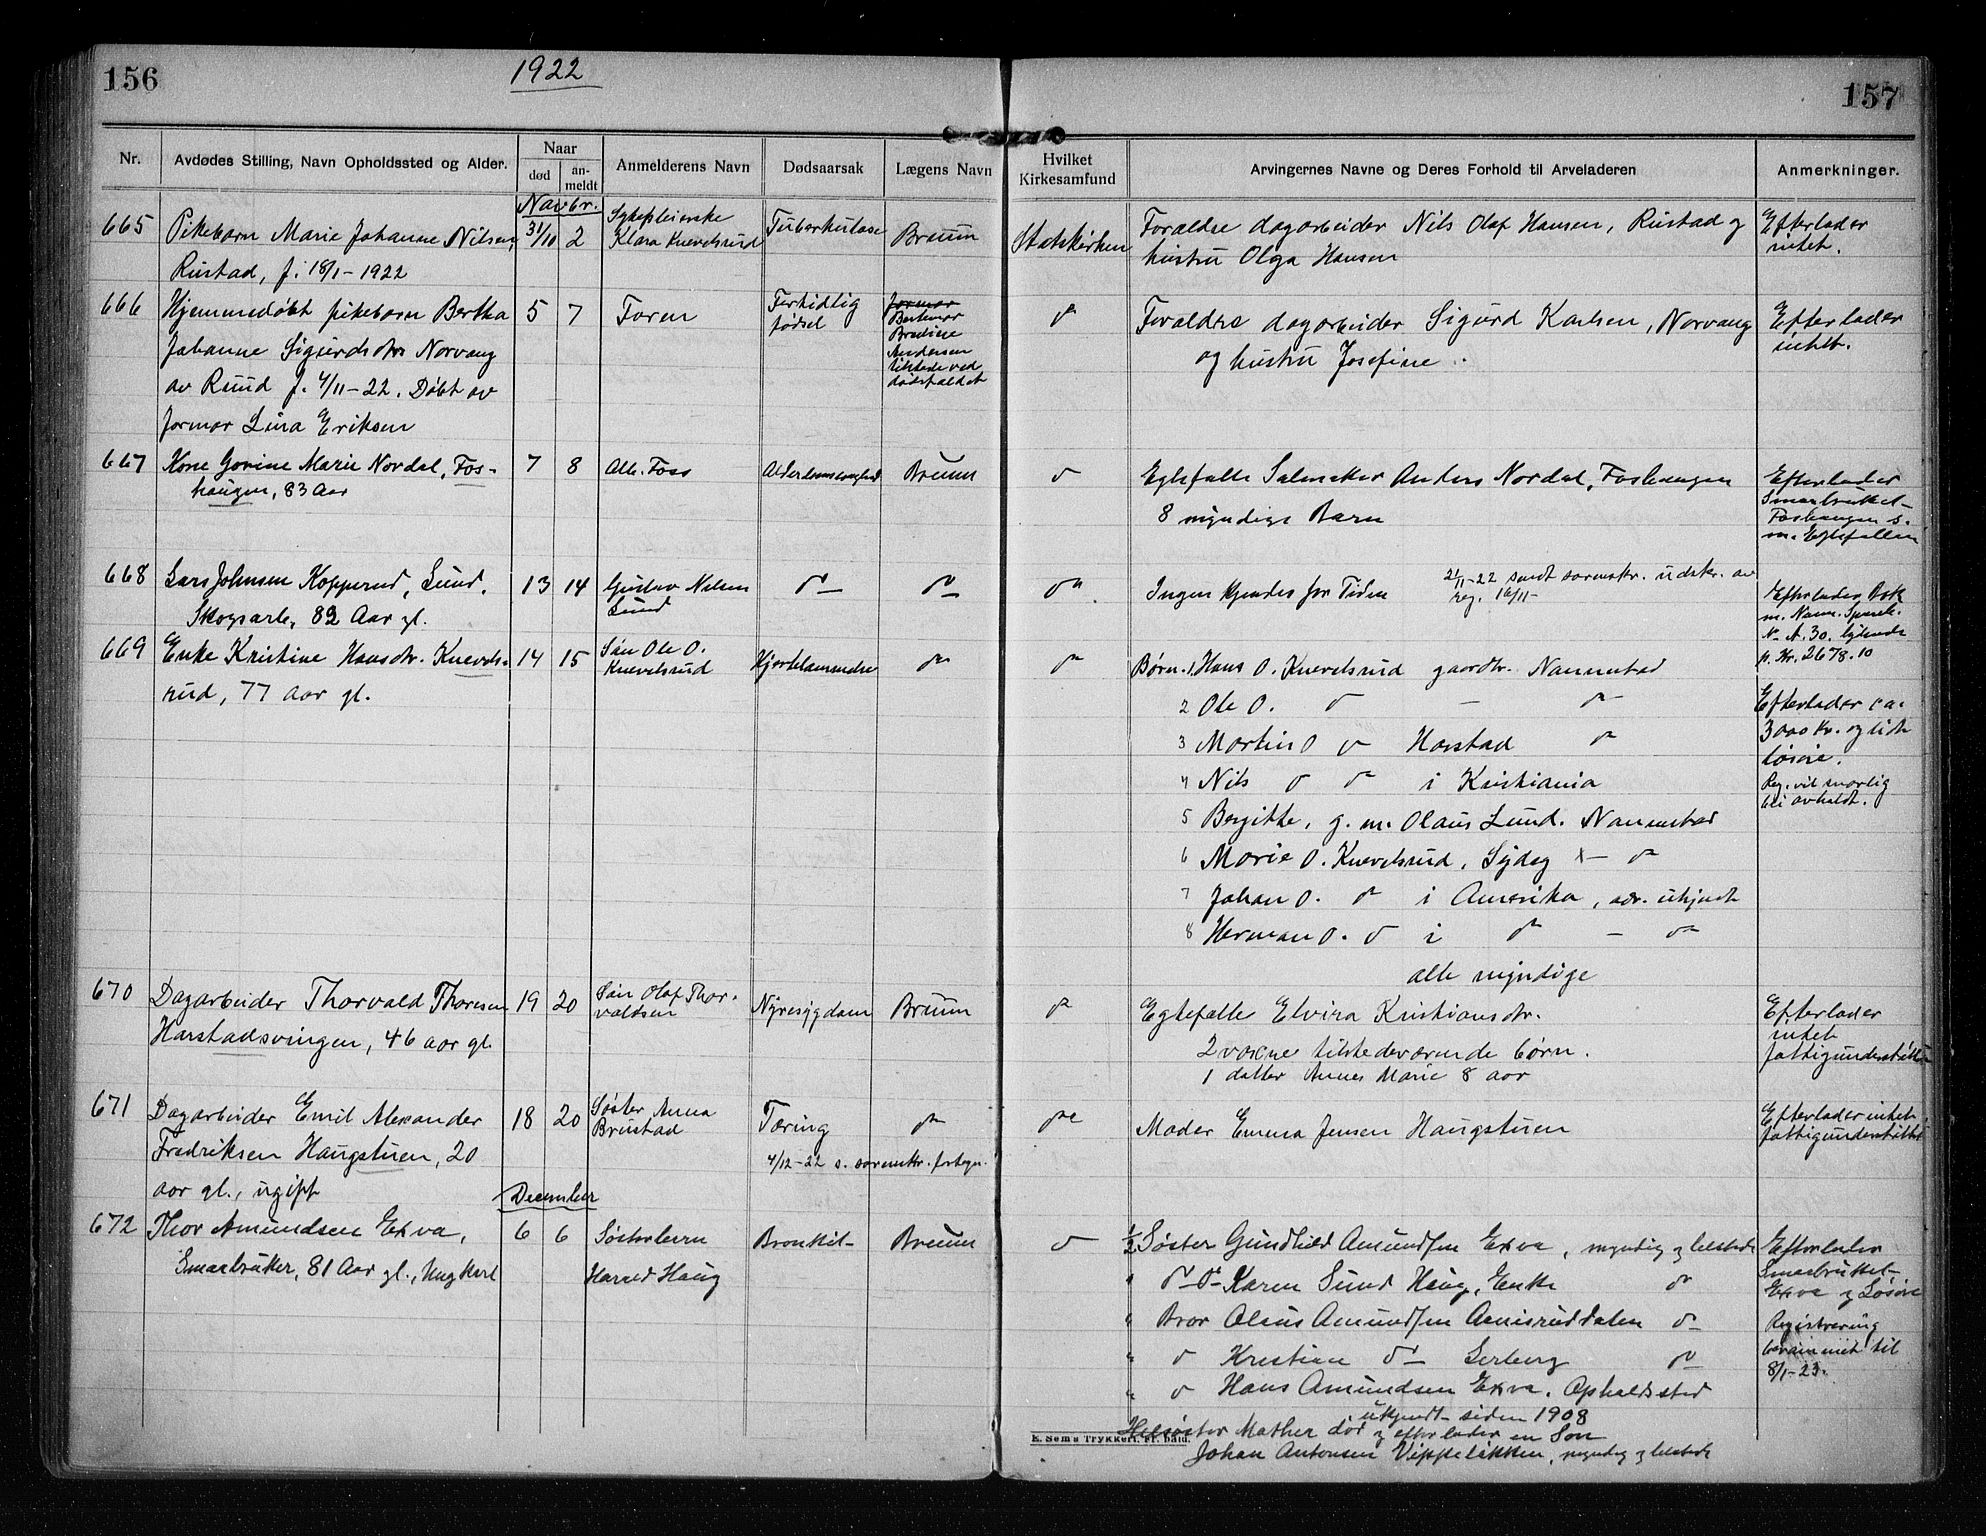 156
1922
157
Nr.
Avdødes Stilling, Navn Opholdssted og Alder.
Naar
død
an-
meldt
Anmelderens Navn
Dødsaarsak
Lægens Navn
Hvilket
Kirkesamfund
Arvingernes Navne og Deres Forhold til Arveladeren
Anmerkninger.
Novbr.
665
Pikebarn Marie Johanne Nilsen,
Rustad, f. 18/1-1922
31/10
2
Sykepleierske
Klara Knevelsrud
Tuberkulose
Bruun
Statskirken
Forældre dagarbeider Nils Olaf Hansen, Rustad og
hustru Olga Hansen
Efterlader
intet.
666
Hjemmedøbt pikebarn Bertha
Johanne Sigurdsdtr Norvang
av Ruud f. 4/11-22. Døbt av
formor Lina Eriksen
5
7
Faren
Fortidlig
fødsel
Jormor
Bestemor
Bredine
Andersen
tilstede ved
dødsfaldet
Forældre dagarbeider Sigurd Karlsen, Norvang
og hustru Josefine
Efterlader
intet.
667
Kone Govine Marie Nordal, Fos-
haugen, 83 Aar
7
8
Alb. Foss
Alderdomssvaghed
Bruun
Egtefælle Salmaker Anders Nordal, Foshaugen
8 myndige Barn
Efterlader
Smaabruket
Foshaugen s.
m. Egtefællen
668
Lars Johnsen Kopperud, Lund,
Skogsarb, 82 Aar gl.
13
14
Gustav Nilsen
Lund
Ingen kjendes for Tiden
21/11-22 sendt sorenskr. udskr. av
reg. 16/11-
Efterlader Bok
m. Nann. Spareb.
N- A.30. lydende
p. Kr. 2678.10
669
Enke Kristine Hansdtr. Knevels-
rud, 77 aar gl.
14
15
Søn Ole O.
Knevelsrud
Hjertelammelse
Børn. 1. Hans O. Knevelsrud gaardbr. Nannestad
2 Ole O.
3 Martin O Harstad
4 Nils i Kristiania
5 Bergitte, g. m. Olaus Lund. Nannestad
6 Marie O. Knevelsrud,
7 Johan O. i Amerika, adr. ukjendt
8 Herman O. i
alle myndige
Efterlader ca.
3000 kr. og lidt
løsøre.
Reg. vil snarlig
bli avholdt.
670
Dagarbeider Thorvald Thoresen
Harstadsvingen, 46 aar gl.
19
20
Søn Olaf Thor-
valdsen
Nyresygdom
Bruun
Egtefælle Elvira Kristiansdtr.
2 voxne tilstedeværende børn.
1 datter Annes Marie 8 aar
Efterlader
intet
fattigunderstøttet
671
Dagarbeider Emil Alexander
Fredriksen Haugstuen, 20
aar gl., ugift
18
20
Søster Anna
Brustad
Tæring
4/12-22 s. sorenskr. fortegn.
Moder Emma Jensen Haugstuen
Efterlader intet
fattigunderstøttet
December
672
Thor Amundsen Exva,
Smaabruker, 81 Aar gl., Ungkarl
6
6
Søsterbarn
Harald Haug
Bronkit-
Bruun
1/2 Søster Gundhild Amundsen Exva, myndig og tilstede
Karen Lund Haug, Enke
Bror Olaus Amundsen Aamisruddalen
Kristian Serberg
Hans Amundsen Exva. Opholdssted
ukjendt siden 1908
Helsøster Mathea død og efterlader en Søn
Johan Antonsen Vippeløkken, myndig og tilstede
Efterlader
Smaabruket
Exva og Løsøre
Registrering
berammet til
8/1-23.
E. Sems Trykkeri. Fr.hald.